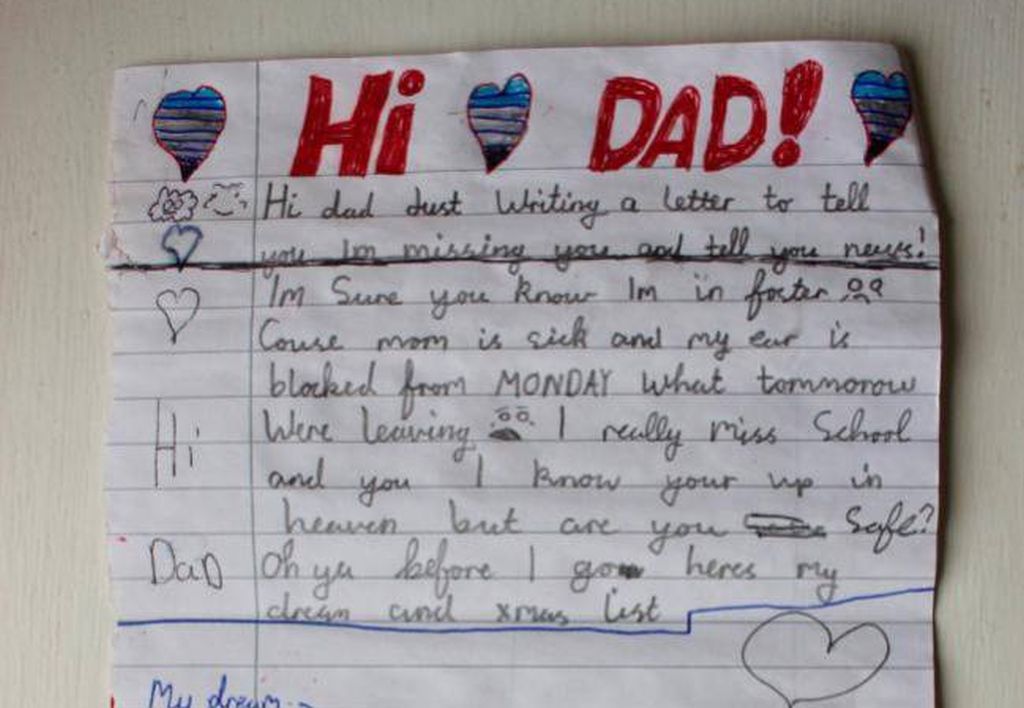 Hi DAD!
Hi dad Just Writing a letter to tell
you Im missing you and tell you news!
Im Sure you know Im in foster
Couse mom is sick and my ear is
blocked from MONDAY What tommorow
Hi Were leaving I really miss School
and you I know your up in
heaven but are you Safe?
DaD Oh ya before I go heres my
dream and xmas list
My dream:-